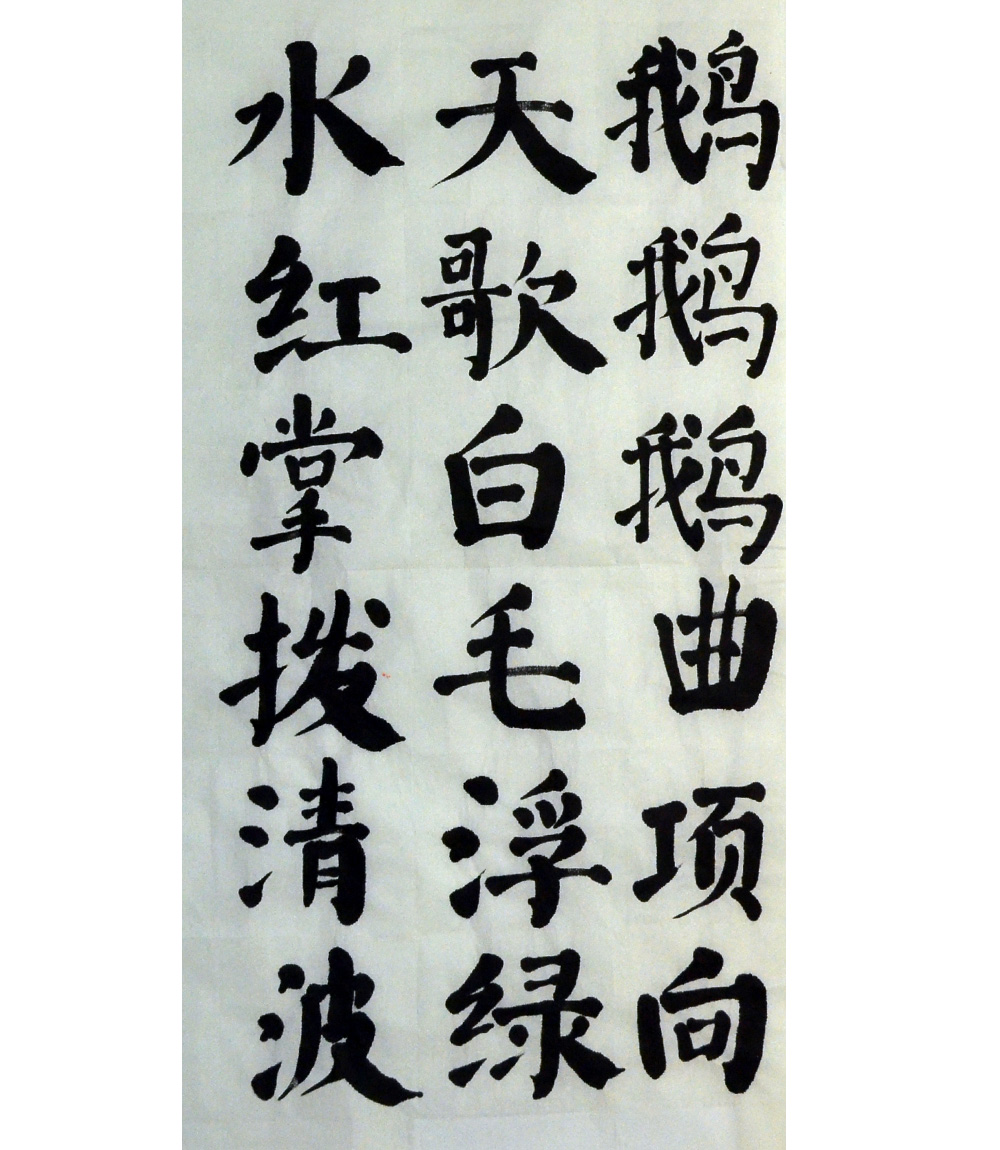 鹅鹅鹅曲项向
天歌白毛浮绿
水红掌拨清波